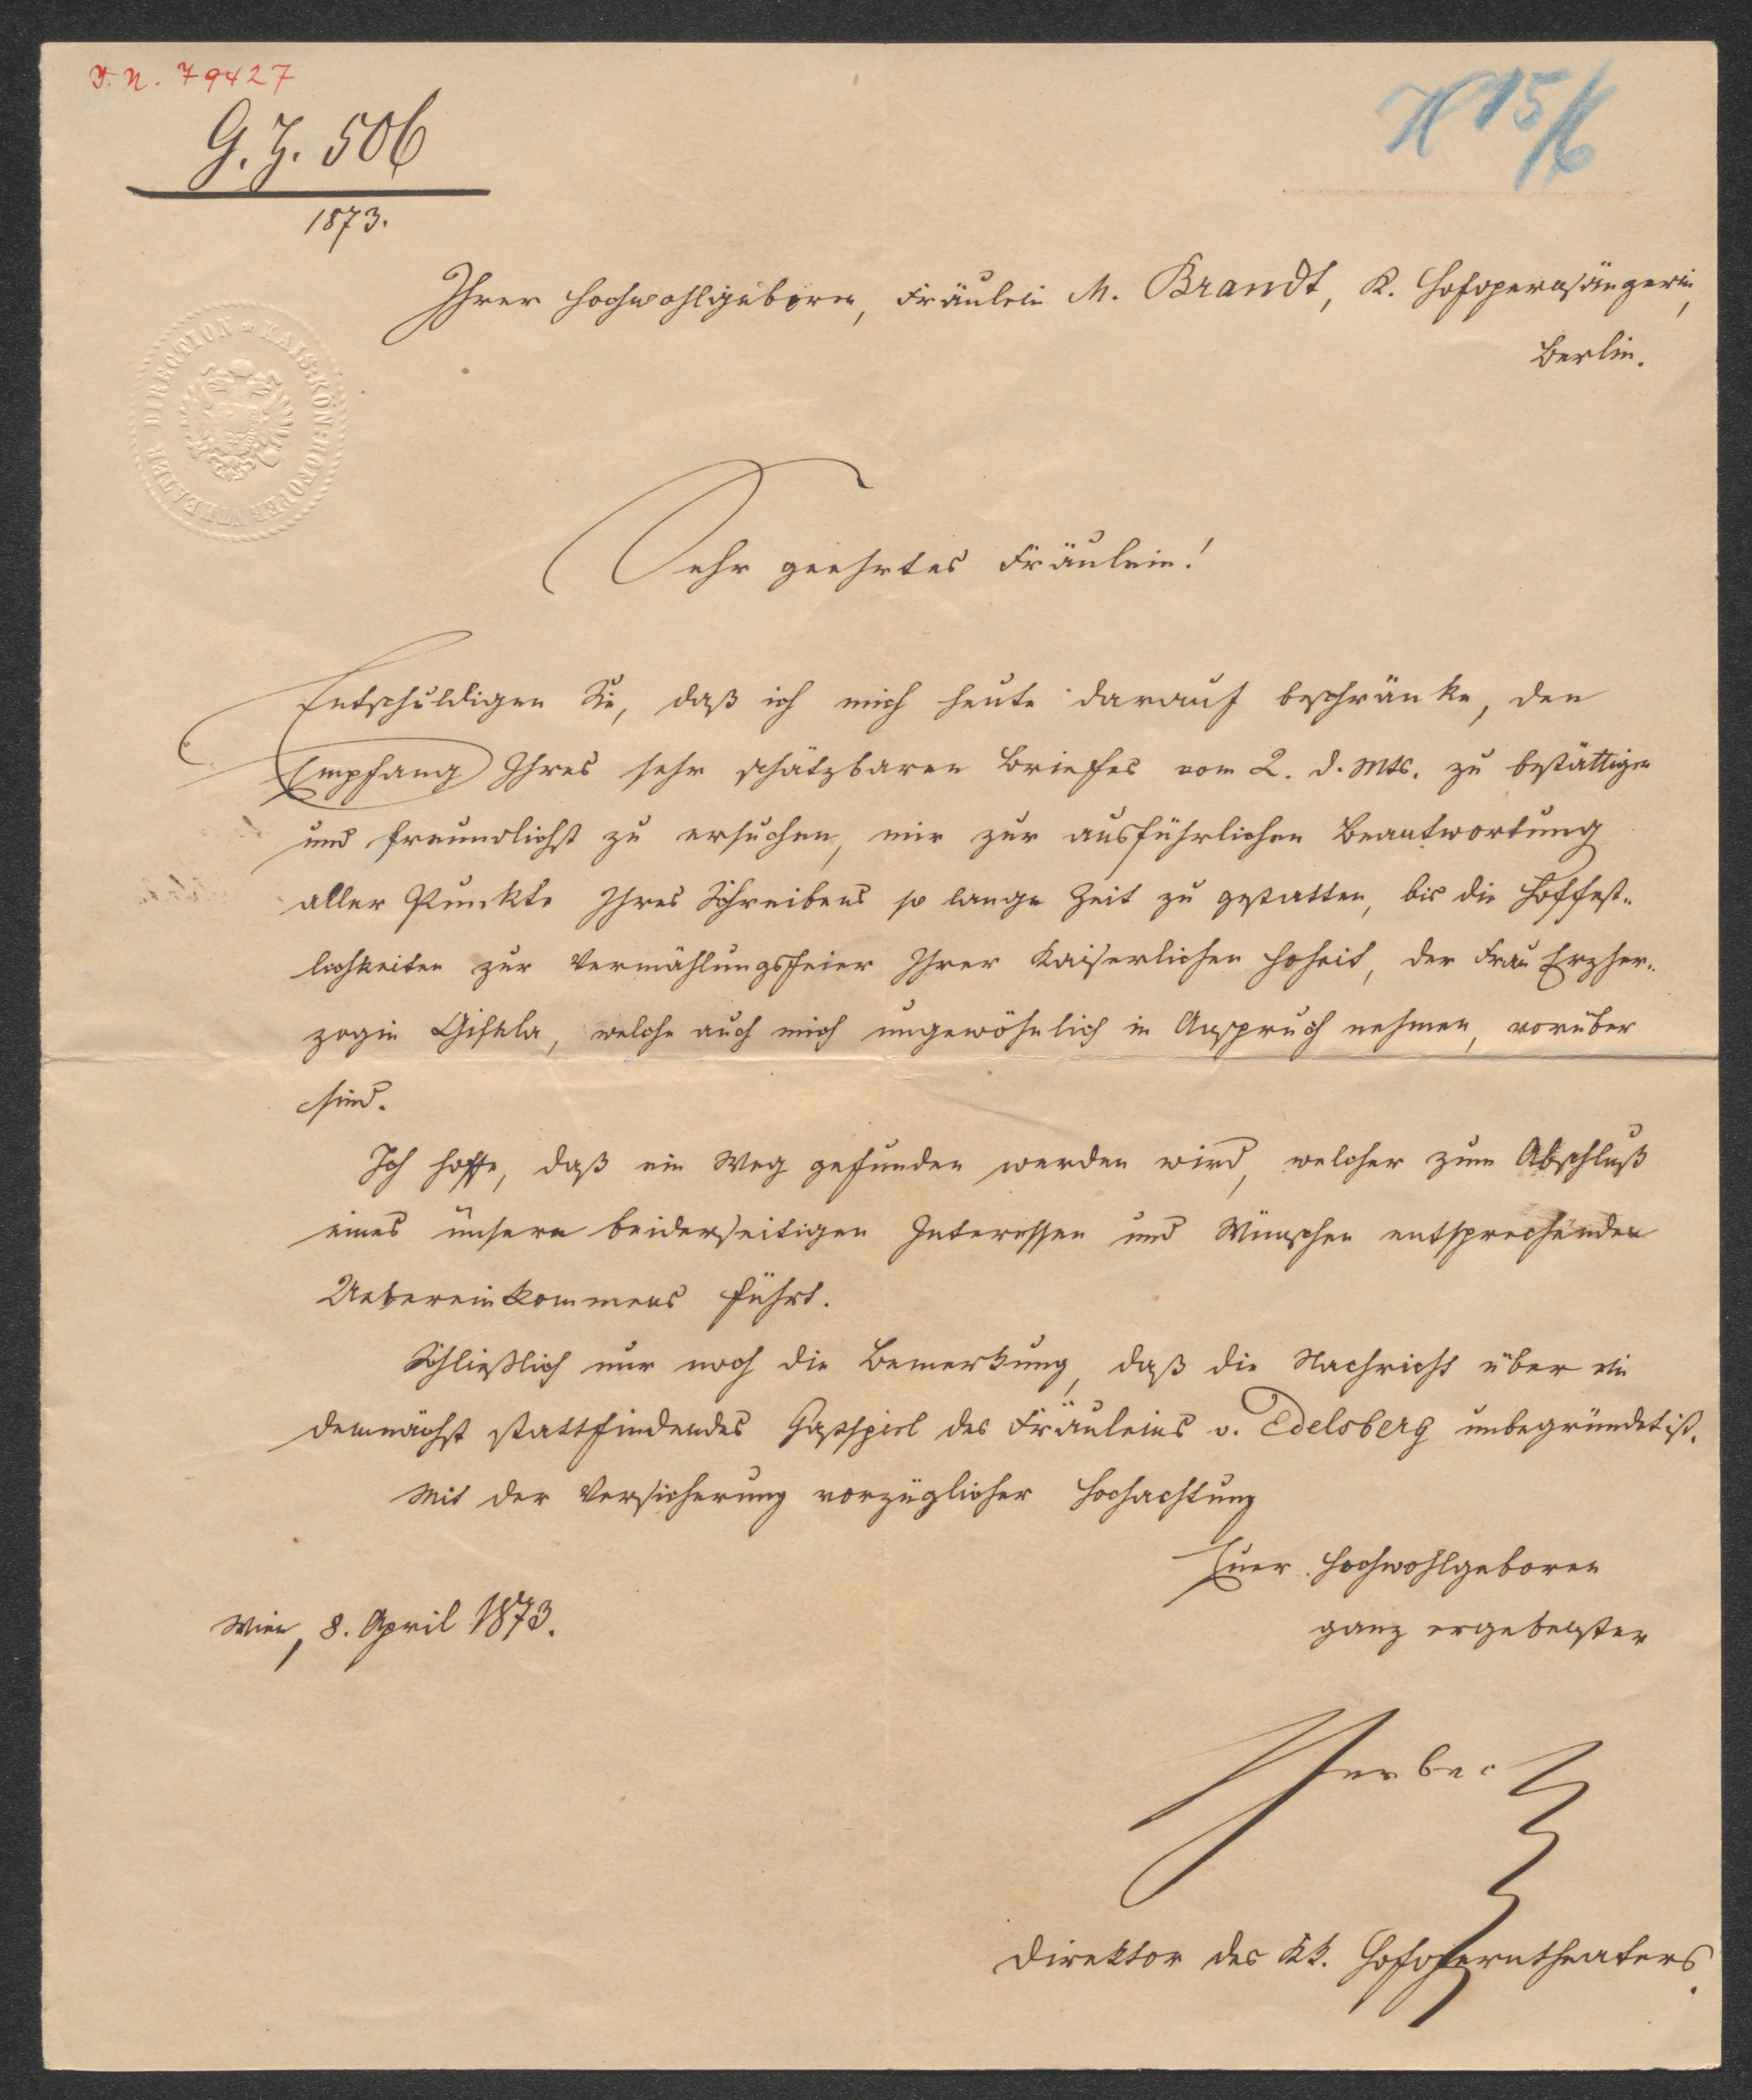 J. N. 79427
G. Z. 506
1873.
Ihrer Hochwohlgeboren, Fräulein M. Brandt, K. Hofopernsängerin,
Berlin.
KAIS: KÖN: HOFOPERNTHEATER DIRECTION
Sehr geehrtes Fräulein!
Entschuldigen Sie, daß ich mich heute darauf beschränke, den
Empfang Ihres sehr schätzbaren Briefes vom 2. d. Mts. zu bestättigen
und freundlichst zu ersuchen, mir zur ausführlichen Beantwortung
aller Punkte Ihres Schreibens so lange Zeit zu gestatten, bis die Hoffest-
lichkeiten zur Vermählungsfeier Ihrer Kaiserlichen Hoheit, der Frau Erzher-
zogin Gisela, welche auch mich ungewöhnlich in Anspruch nehmen, vorüber
sind.
Ich hoffe, daß ein Weg gefunden werden wird, welcher zum Abschluß
eines unsern beiderseitigen Interessen und Wünschen entsprechenden
Uebereinkommens führt.
Schließlich nur noch die Bemerkung, daß die Nachricht über ein
demnächst stattfindendes Gastspiel des Fräuleins v. Edelsberg unbegründet ist.
Mit der Versicherung vorzüglicher Hochachtung
Euer Hochwohlgeboren
ganz ergebenster
Wien, 8. April 1873.
Herbeck
Direktor des kk. Hofoperntheaters.